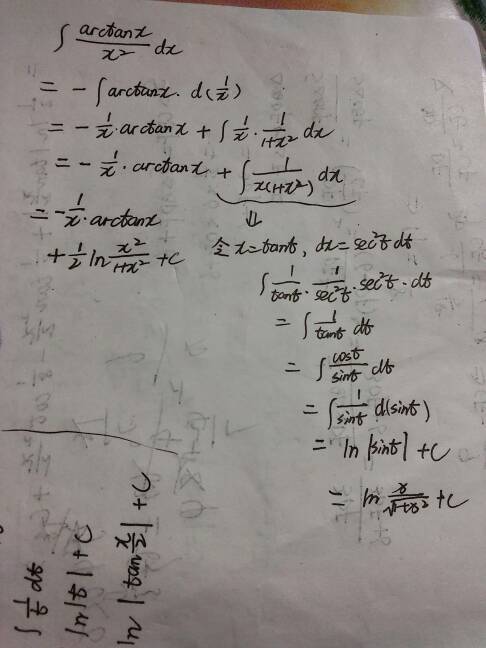 ∫ arctanx/x² dx
= - ∫ arctanx · d(1/x)
= - 1/x · arctanx + ∫ 1/x · 1/(1+x²) dx
= - 1/x · arctanx + ∫ 1/(x(1+x²)) dx
= - 1/x · arctanx
+ 1/2 ln x²/(1+x²) + C
⇓
令 x = tant, dx = sec²t dt
∫ 1/tant · 1/sec²t · sec²t · dt
= ∫ 1/tant dt
= ∫ cost/sint dt
= ∫ 1/sint d(sint)
= ln |sint| + C
= ln x/√(1+x²) + C
∫ 1/t dt
ln |t| + C
ln | tan x/2 | + C